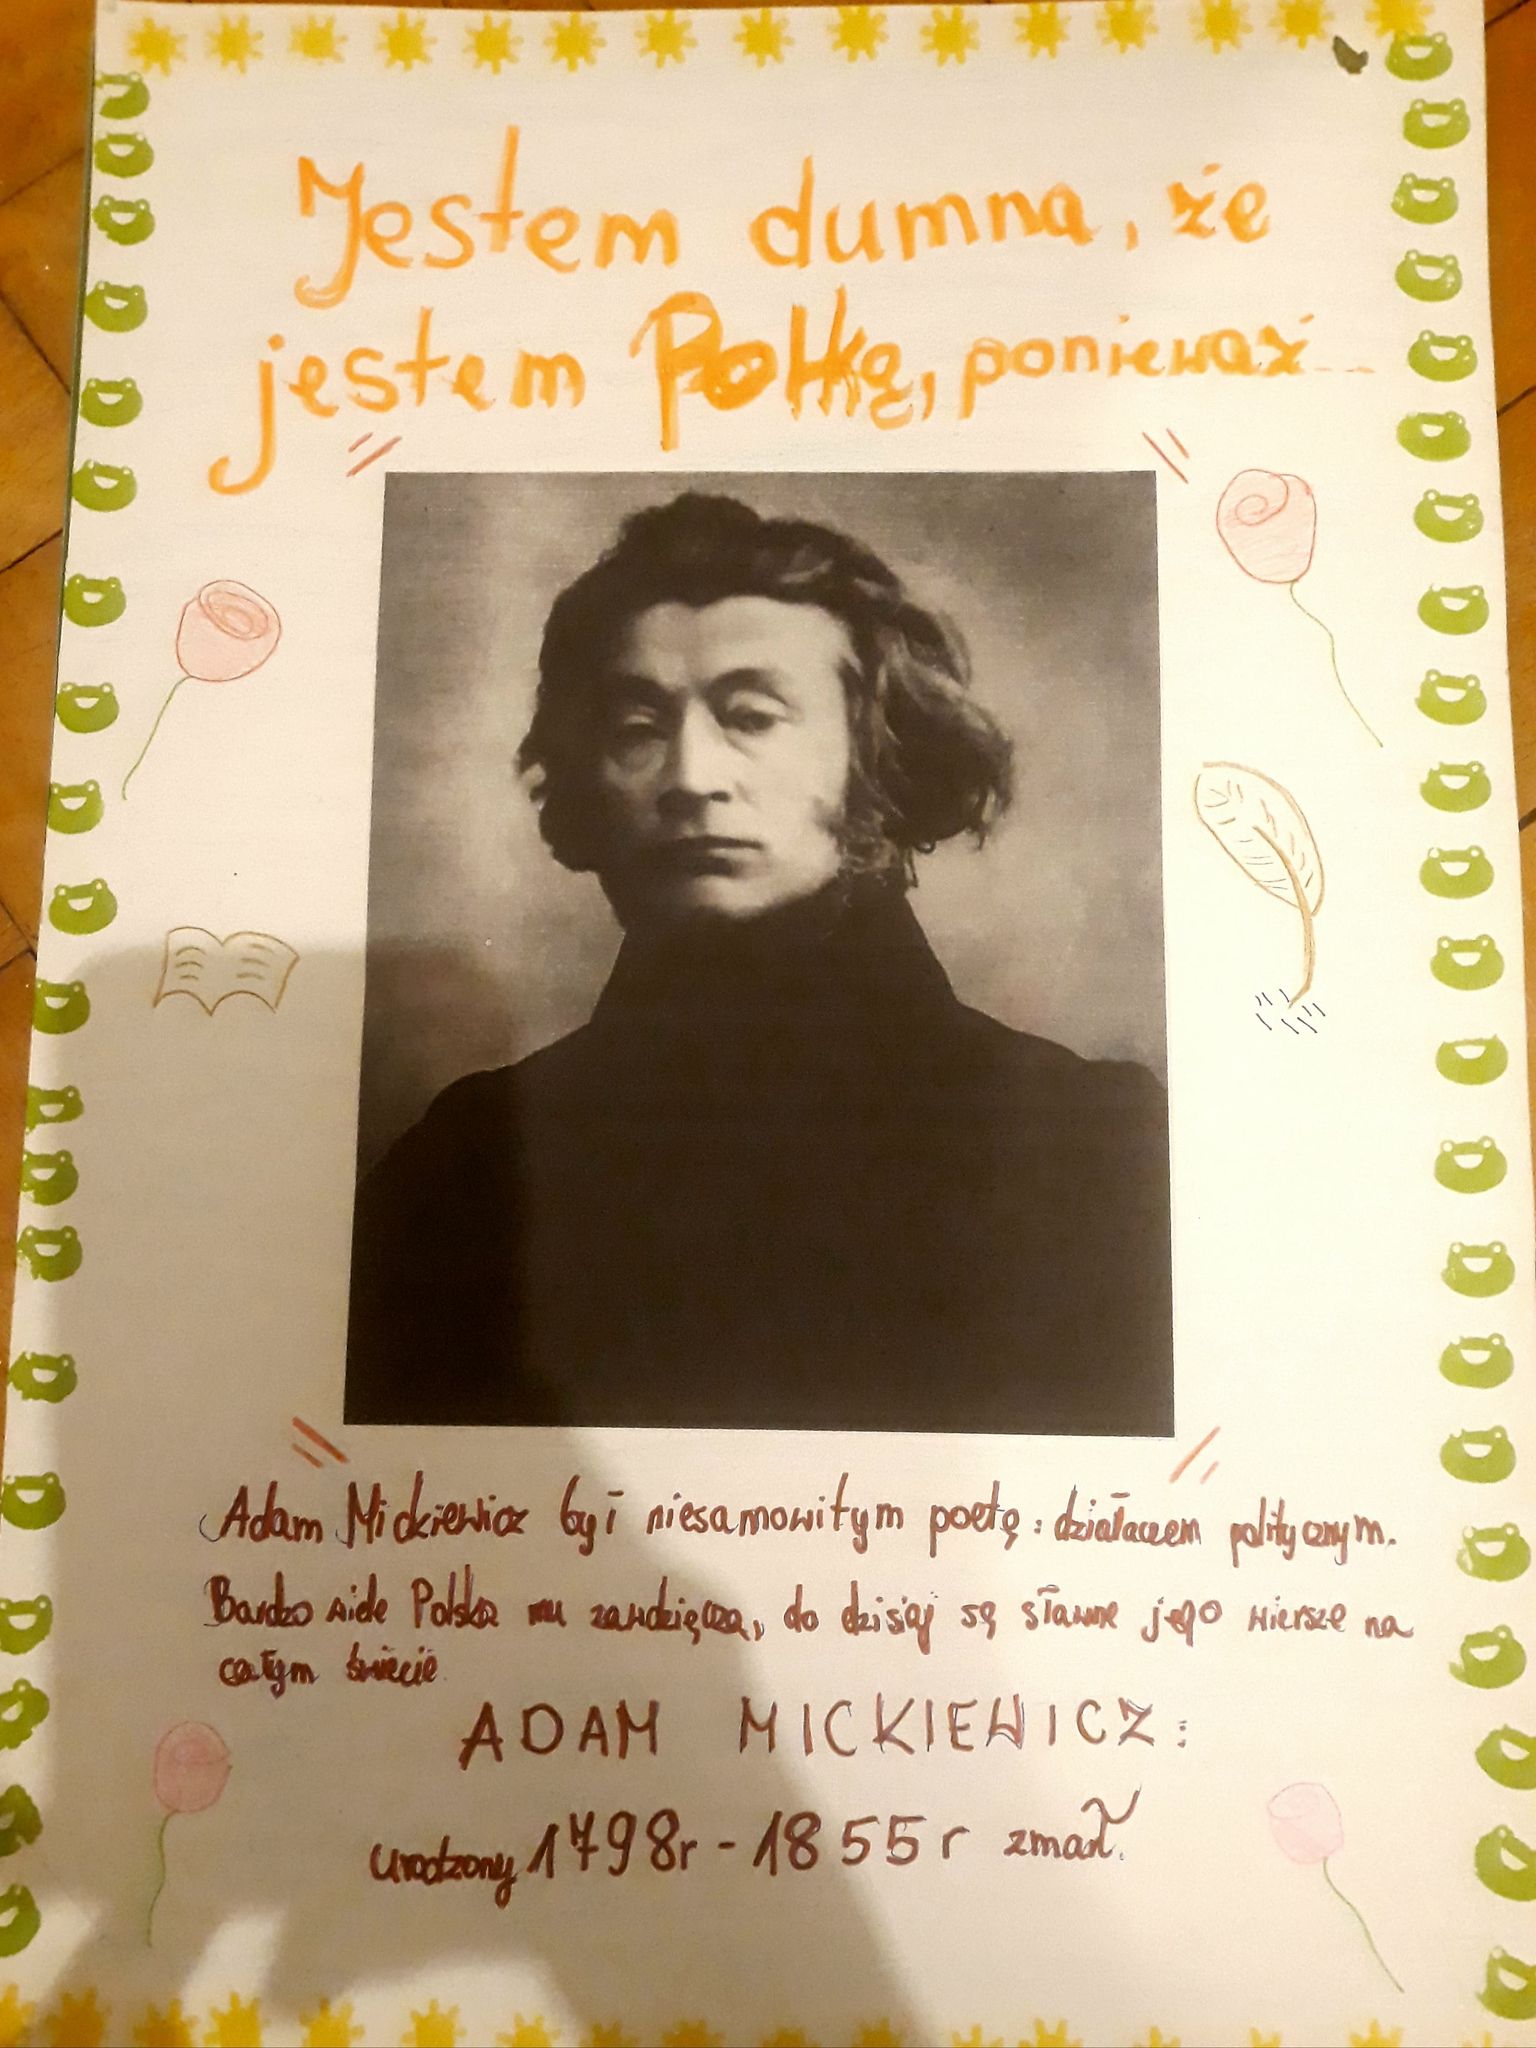 Jestem dumna, że
jestem Polką, ponieważ...
Adam Mickiewicz był niesamowitym poetą i działaczem politycznym.
Bardzo wiele Polska mu zawdzięcza, do dzisiaj są sławne jego wiersze na
całym świecie.
ADAM MICKIEWICZ:
urodzony 1798r - 1855r zmarł.